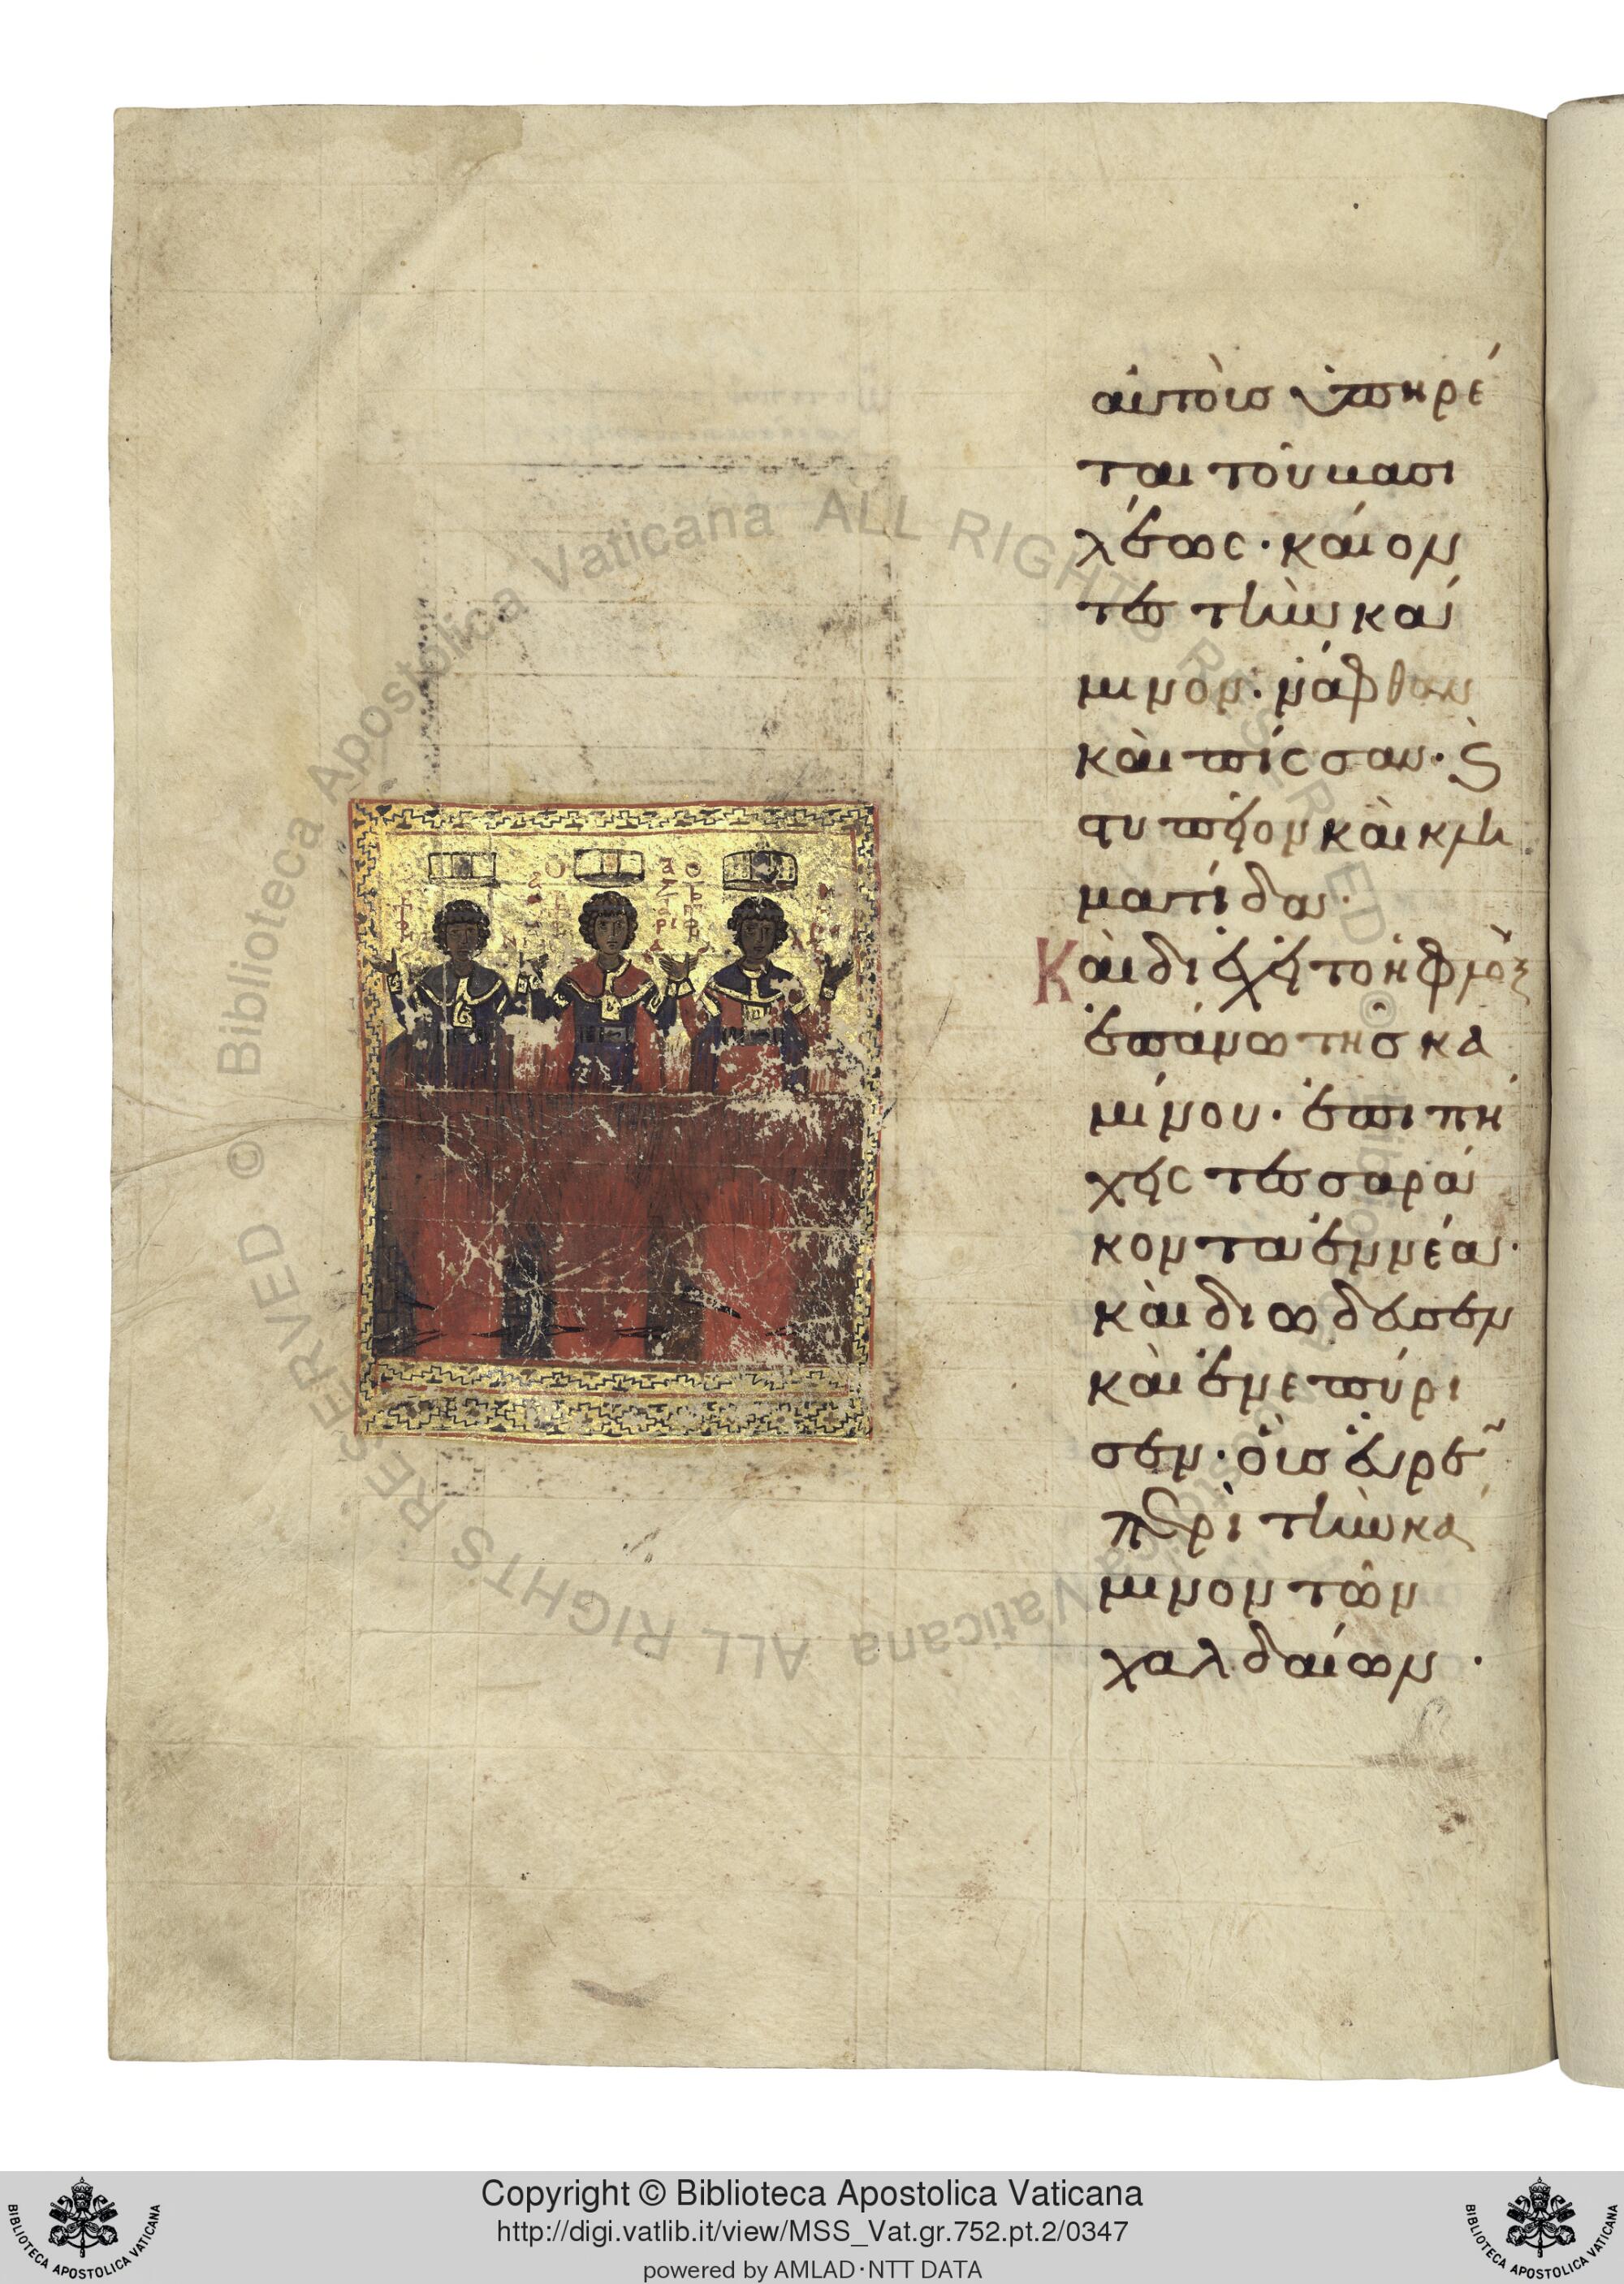 αὐτοὺσ ὑπηρέ
ται τοῦ βασι
λέωσ· καίον
τεσ τὴν κά
μινον· νάφθαν
καὶ πίσσαν· ϗ
στυπεῖον καὶ κλη
ματίδα·
Καὶ διεχεῖτο ἡ φλὸξ
ἐπάνω τῆσ κα
μίνου· ἐπὶ πή
χεισ τεσσαρά
κοντα ἐννέα·
καὶ διώδευσεν
καὶ ἐνεπύρι
σεν· οὓσ εὗρε
περὶ τὴν κά
μινον τῶν
χαλδαίων·
Copyright © Biblioteca Apostolica Vaticana
http://digi.vatlib.it/view/MSS_Vat.gr.752.pt.2/0347
powered by AMLAD·NTT DATA
BIBLIOTECA APOSTOLICA VATICANA
BIBLIOTECA APOSTOLICA VATICANA
© Biblioteca Apostolica Vaticana ALL RIGHTS RESERVED
© Biblioteca Apostolica Vaticana ALL RIGHTS RESERVED